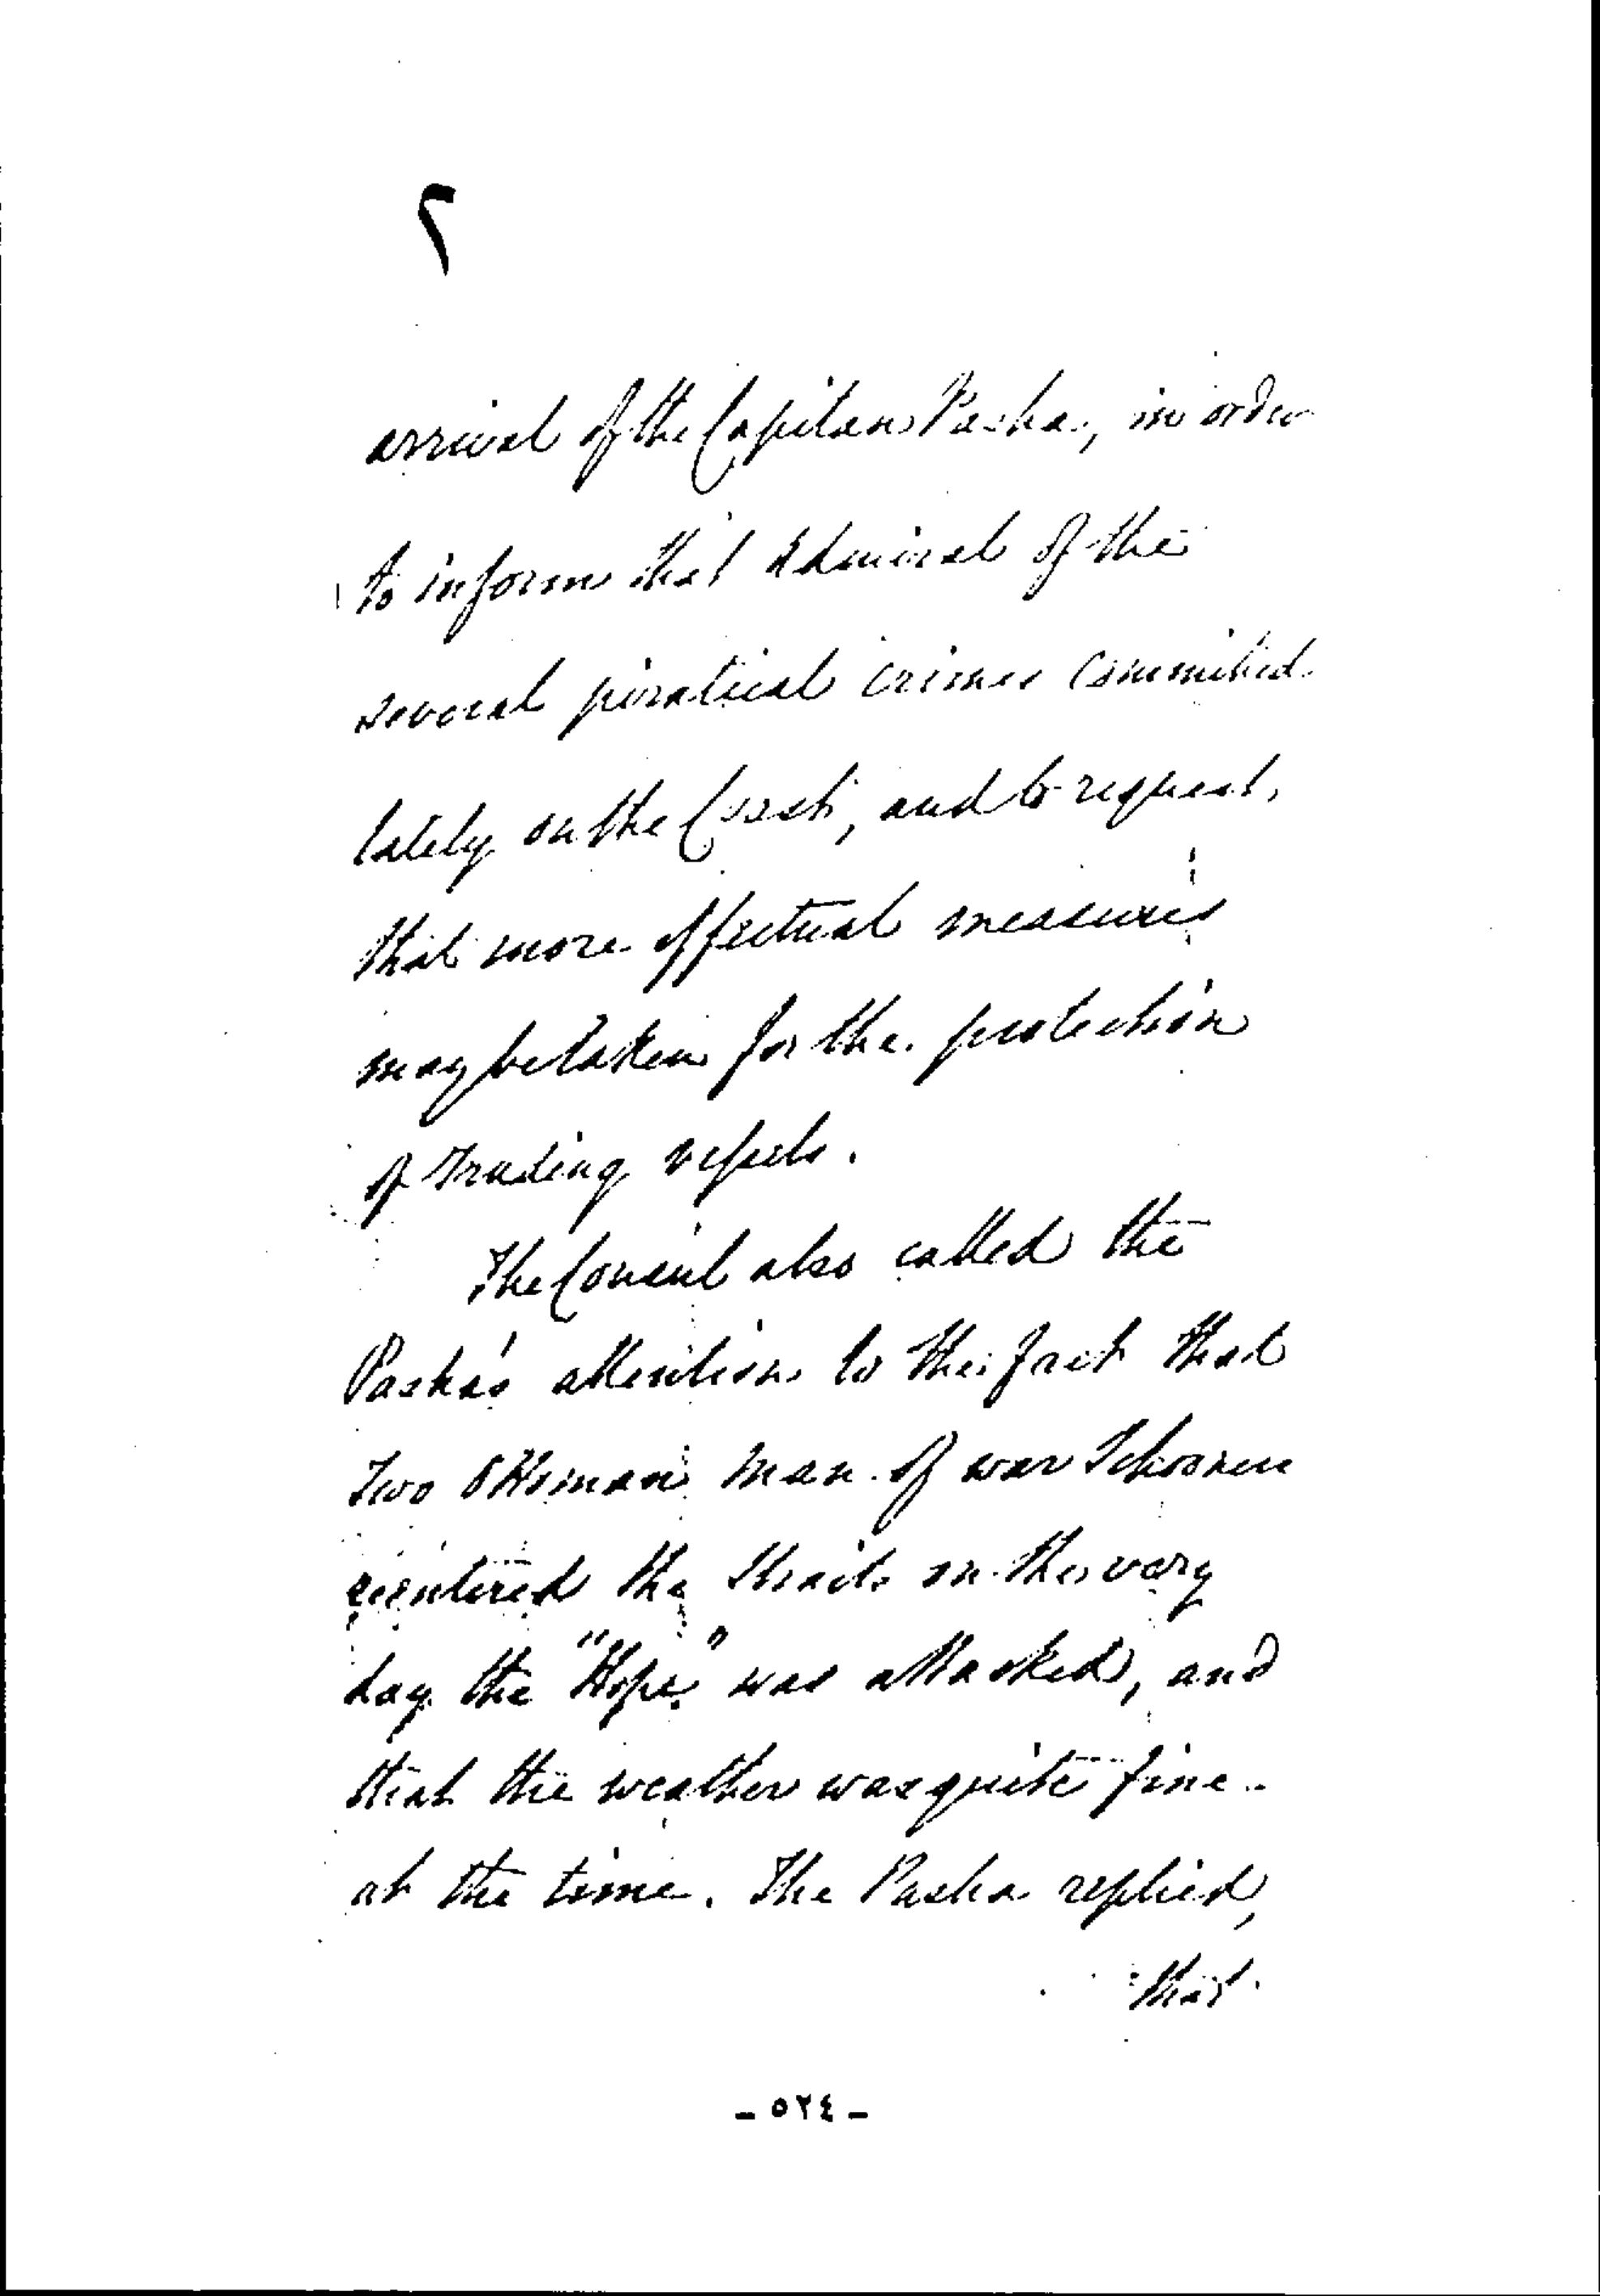 ٢
arrival of the Capitan Pasha, in order
to inform that Admiral of the
several piratical crimes committed
lately on the Coast, and to request,
that more effectual measures
may be taken for the protection
of Trading vessels.
The Consul also called the
Pasha's attention to the fact that
two Ottoman man of war Schooners
reentered the Straits on the very
day the "Hope" was attacked, and
that the weather was quite fine
at the time. The Pasha replied,
that
- ٥٢٤ -